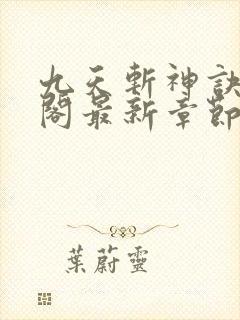 九天斬神訣
閣最新章節
葉蔚靈